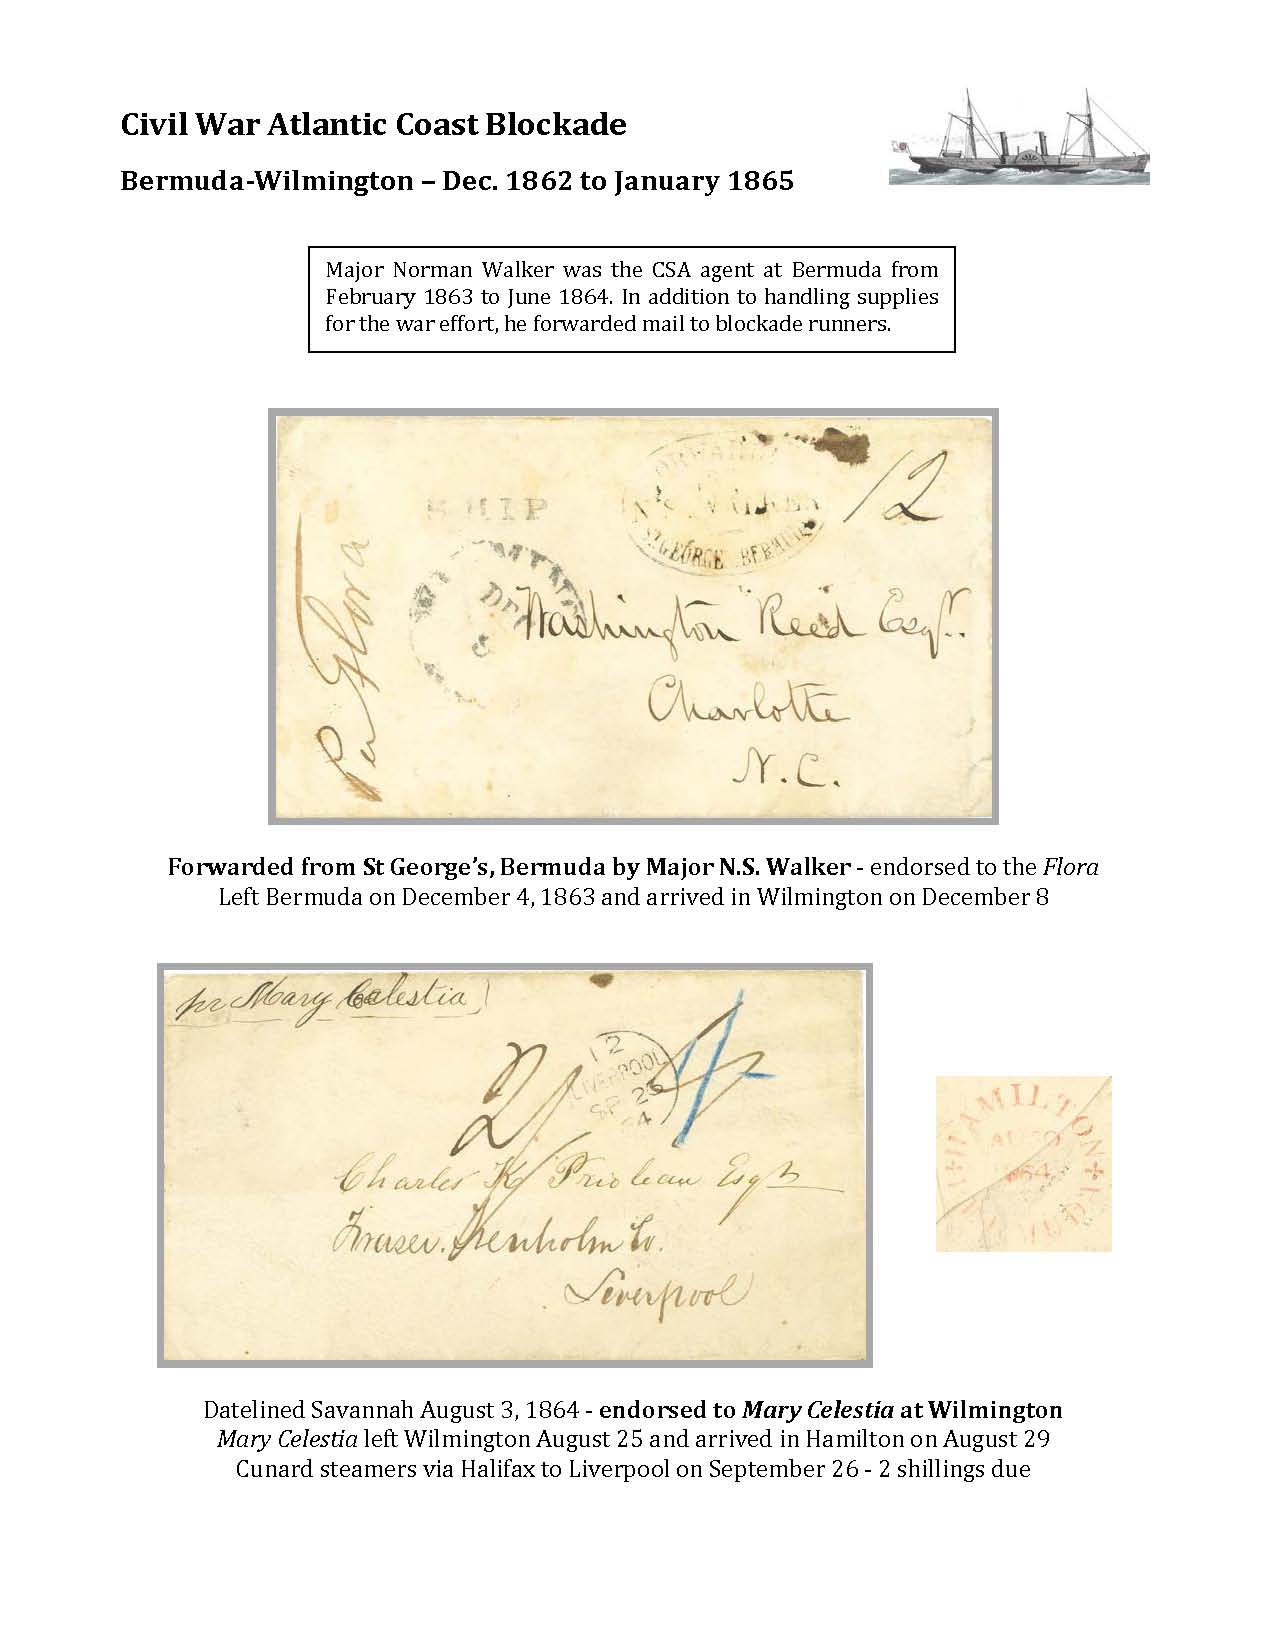 Civil War Atlantic Coast Blockade
Bermuda-Wilmington – Dec. 1862 to January 1865
Major Norman Walker was the CSA agent at Bermuda from
February 1863 to June 1864. In addition to handling supplies
for the war effort, he forwarded mail to blockade runners.
SHIP
12
ST GEORGE
Per Flora
DE
Washington Reed Esqr.
Charlotte
N.C.
Forwarded from St George’s, Bermuda by Major N.S. Walker - endorsed to the Flora
Left Bermuda on December 4, 1863 and arrived in Wilmington on December 8
pr Mary Celestia
12
LIVERPOOL
SP 26
64
2/
1/
Charles K Prioleau Esqr
Fraser. Trenholm Co.
Liverpool
HAMILTON
AU 30
1864
Datelined Savannah August 3, 1864 - endorsed to Mary Celestia at Wilmington
Mary Celestia left Wilmington August 25 and arrived in Hamilton on August 29
Cunard steamers via Halifax to Liverpool on September 26 - 2 shillings due